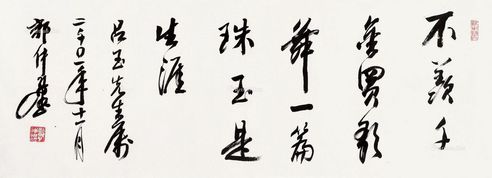 不羡千
金買歌
舞一篇
珠玉是
生涯
吕玉先生属
二千〇一年十一月
郭仲選